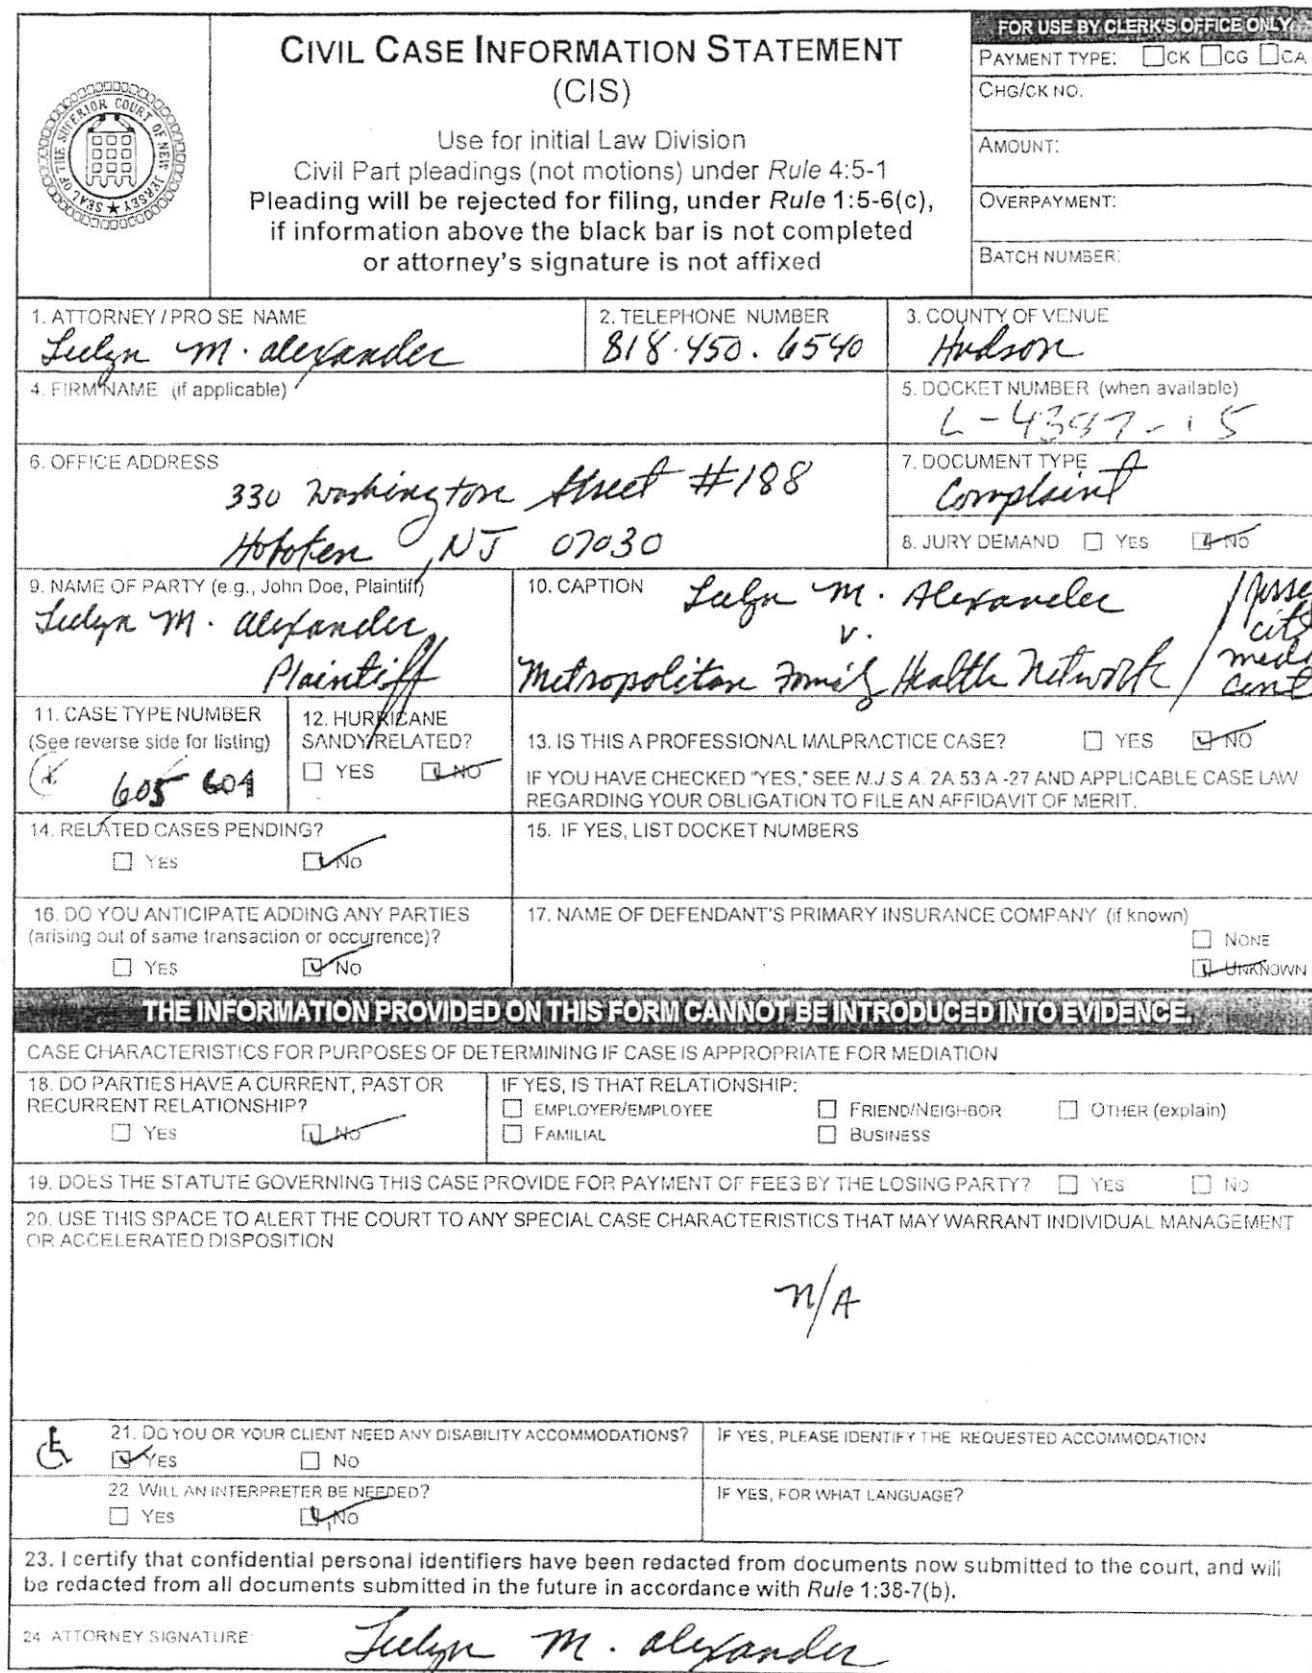 SEAL OF THE SUPERIOR COURT OF NEW JERSEY
CIVIL CASE INFORMATION STATEMENT
(CIS)
Use for initial Law Division
Civil Part pleadings (not motions) under Rule 4:5-1
Pleading will be rejected for filing, under Rule 1:5-6(c),
if information above the black bar is not completed
or attorney's signature is not affixed
FOR USE BY CLERK'S OFFICE ONLY
PAYMENT TYPE: CK CG CA
CHG/CK NO.
AMOUNT:
OVERPAYMENT:
BATCH NUMBER:
1. ATTORNEY / PRO SE NAME
M. alexander
2. TELEPHONE NUMBER
818.450.6540
3. COUNTY OF VENUE
Hudson
4. FIRM NAME (if applicable)
5. DOCKET NUMBER (when available)
6. OFFICE ADDRESS
330 Washington Street #188
Hoboken, NJ 07030
7. DOCUMENT TYPE
Complaint
8. JURY DEMAND YES NO
9. NAME OF PARTY (e.g., John Doe, Plaintiff)
M. alexander,
Plaintiff
10. CAPTION
M. Alexander
v.
Metropolitan Family Health Network /
city
11. CASE TYPE NUMBER
(See reverse side for listing)
605
12. HURRICANE
SANDY RELATED?
YES NO
13. IS THIS A PROFESSIONAL MALPRACTICE CASE? YES NO
IF YOU HAVE CHECKED "YES," SEE N.J.S.A. 2A:53 A -27 AND APPLICABLE CASE LAW
REGARDING YOUR OBLIGATION TO FILE AN AFFIDAVIT OF MERIT.
14. RELATED CASES PENDING?
YES NO
15. IF YES, LIST DOCKET NUMBERS
16. DO YOU ANTICIPATE ADDING ANY PARTIES
(arising out of same transaction or occurrence)?
YES NO
17. NAME OF DEFENDANT'S PRIMARY INSURANCE COMPANY (if known)
NONE
UNKNOWN
THE INFORMATION PROVIDED ON THIS FORM CANNOT BE INTRODUCED INTO EVIDENCE.
CASE CHARACTERISTICS FOR PURPOSES OF DETERMINING IF CASE IS APPROPRIATE FOR MEDIATION
18. DO PARTIES HAVE A CURRENT, PAST OR
RECURRENT RELATIONSHIP?
YES NO
IF YES, IS THAT RELATIONSHIP:
EMPLOYER/EMPLOYEE FRIEND/NEIGHBOR OTHER (explain)
FAMILIAL BUSINESS
19. DOES THE STATUTE GOVERNING THIS CASE PROVIDE FOR PAYMENT OF FEES BY THE LOSING PARTY? YES NO
20. USE THIS SPACE TO ALERT THE COURT TO ANY SPECIAL CASE CHARACTERISTICS THAT MAY WARRANT INDIVIDUAL MANAGEMENT
OR ACCELERATED DISPOSITION
N/A
21. DO YOU OR YOUR CLIENT NEED ANY DISABILITY ACCOMMODATIONS?
YES NO
IF YES, PLEASE IDENTIFY THE REQUESTED ACCOMMODATION
22 WILL AN INTERPRETER BE NEEDED?
YES NO
IF YES, FOR WHAT LANGUAGE?
23. I certify that confidential personal identifiers have been redacted from documents now submitted to the court, and will
be redacted from all documents submitted in the future in accordance with Rule 1:38-7(b).
24 ATTORNEY SIGNATURE:
M. alexander